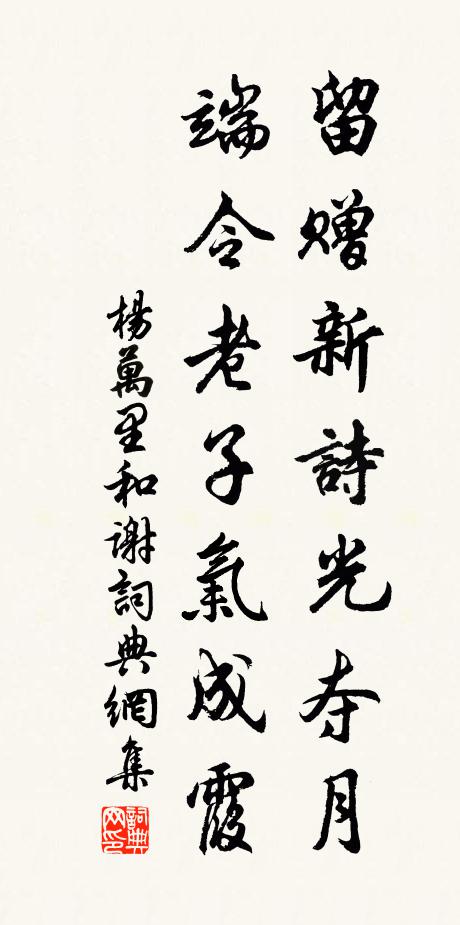 留赠新詩光夺月
端令老子氣成霞
楊萬里和谢詞典網集
詞典网印